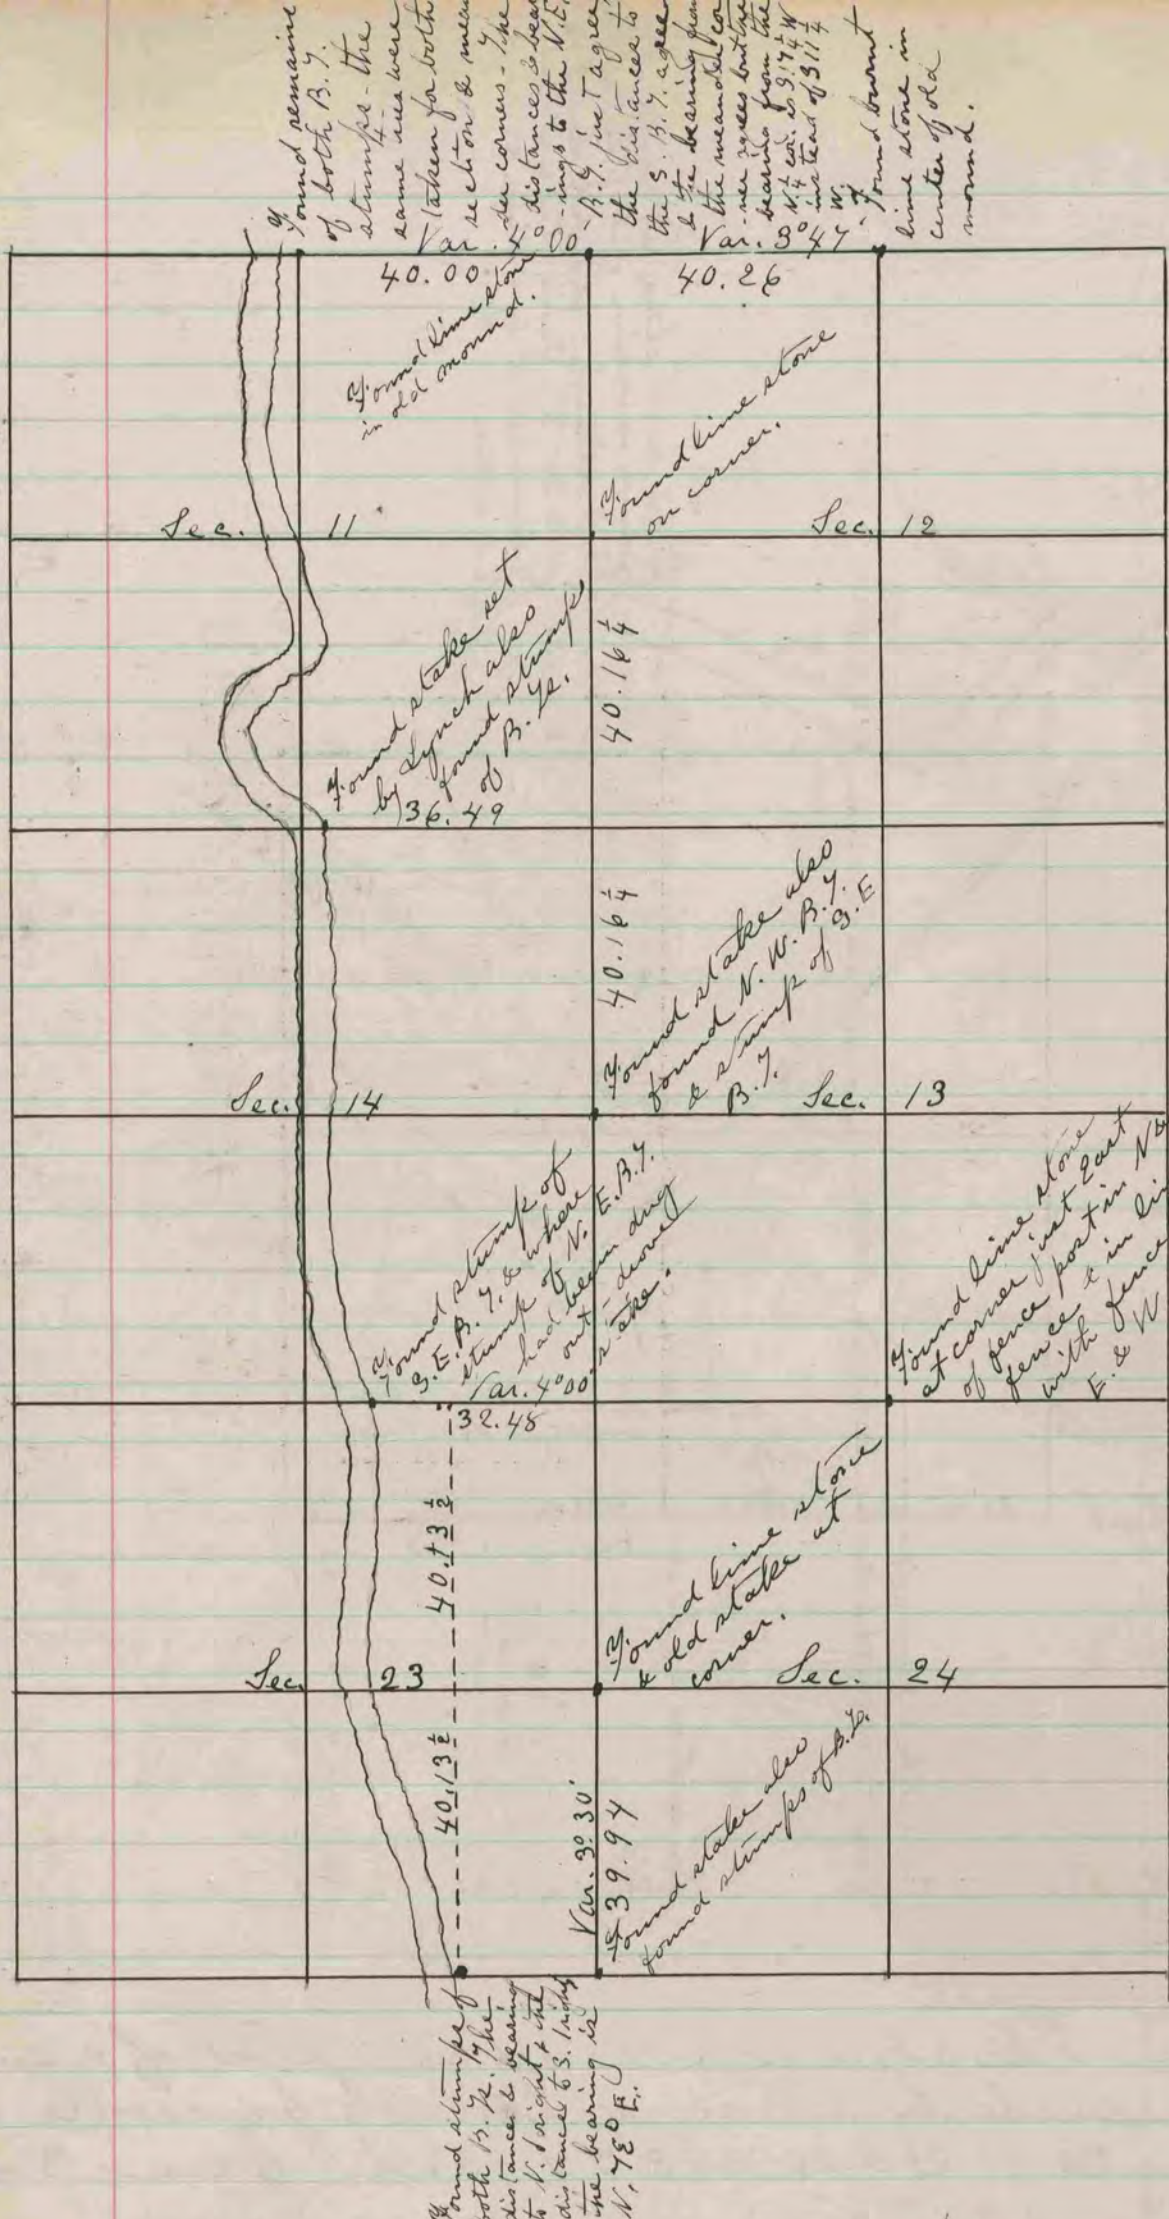 Found remains
of both B.T.
stumps - the
same were
taken for both
section & mean
der corners - The
distances & bear
-ings to the N.E.
B.T. just agree
the distances to
the S. B.T. agree
& the bearing from
the meander cor
-ner agrees but the
bearing from the
N ¼ cor. is S. 17 ¼ W
instead of S 11 ¼
W.
Found burnt
lime stone in
center of old
mound.
Var. 4° 00'
Var. 3° 47'
40.00
40.26
Found lime stone
in old mound.
Found lime stone
on corner.
Sec. 11
Sec. 12
Found stake set
by Lynch also
found stumps
of B. Ts.
36.49
40.16 ¼
40.16 ¼
Found stake also
found N. W. B.T.
& stump of S.E
B.T.
Sec. 14
Sec. 13
Found stump of
S.E.B.T. & where
stump of N. E. B.T.
had been dug
out - drove
stake.
Var. 4° 00'
32.48
Found lime stone
at corner just East
of fence post in N &
fence & in li
with fence
E. & W
40.13 ½
Found lime stone
& old stake at
corner.
Sec. 23
Sec. 24
40.13 ½
Var. 3° 30'
39.94
Found stake also
found stumps of B.Ts.
Found stumps of
both B. Ts. The
distances & bearing
to N. right & the
distance to S. right
the bearing is
N. 78° E.